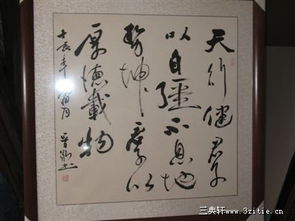 天行健君子
以自彊不息地
勢坤君子以
厚德載物
www.3zitie.cn